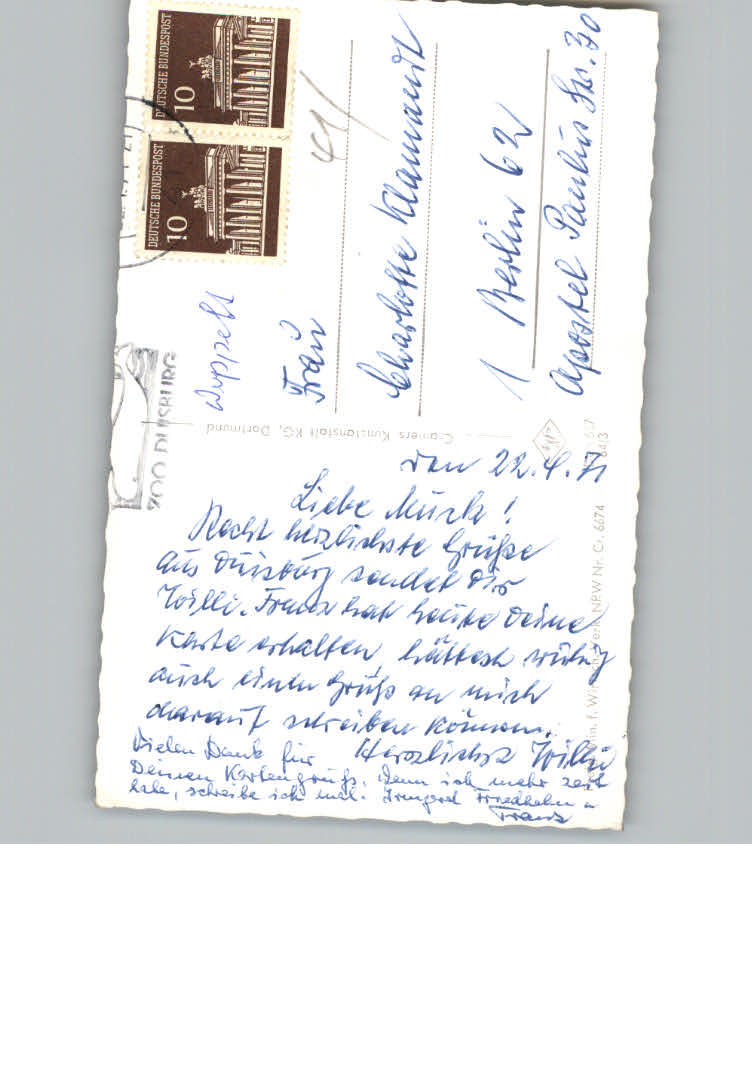 den 22.4.71
Liebe Musch!
Recht herzlichste Grüße
aus Duisburg sendet Dir
Willi. Franz hat heute Deine
Karte erhalten, hättest ruhig
auch einen Gruß an mich
darauf schreiben können.
Herzlichst Willi
Vielen Dank für
Deinen Kartengruß. Wenn ich mehr Zeit
habe, schreibe ich mal. Irmgard Friedhelm u
Franz
DEUTSCHE BUNDESPOST
10
DEUTSCHE BUNDESPOST
10
ZOO DUISBURG
41/
Wippelt
Frau
Charlotte Klamandt
1 Berlin 62
Apostel Paulus Str. 30
Cramers Kunstanstalt KG, Dortmund
NRW Nr. Cr. 6674